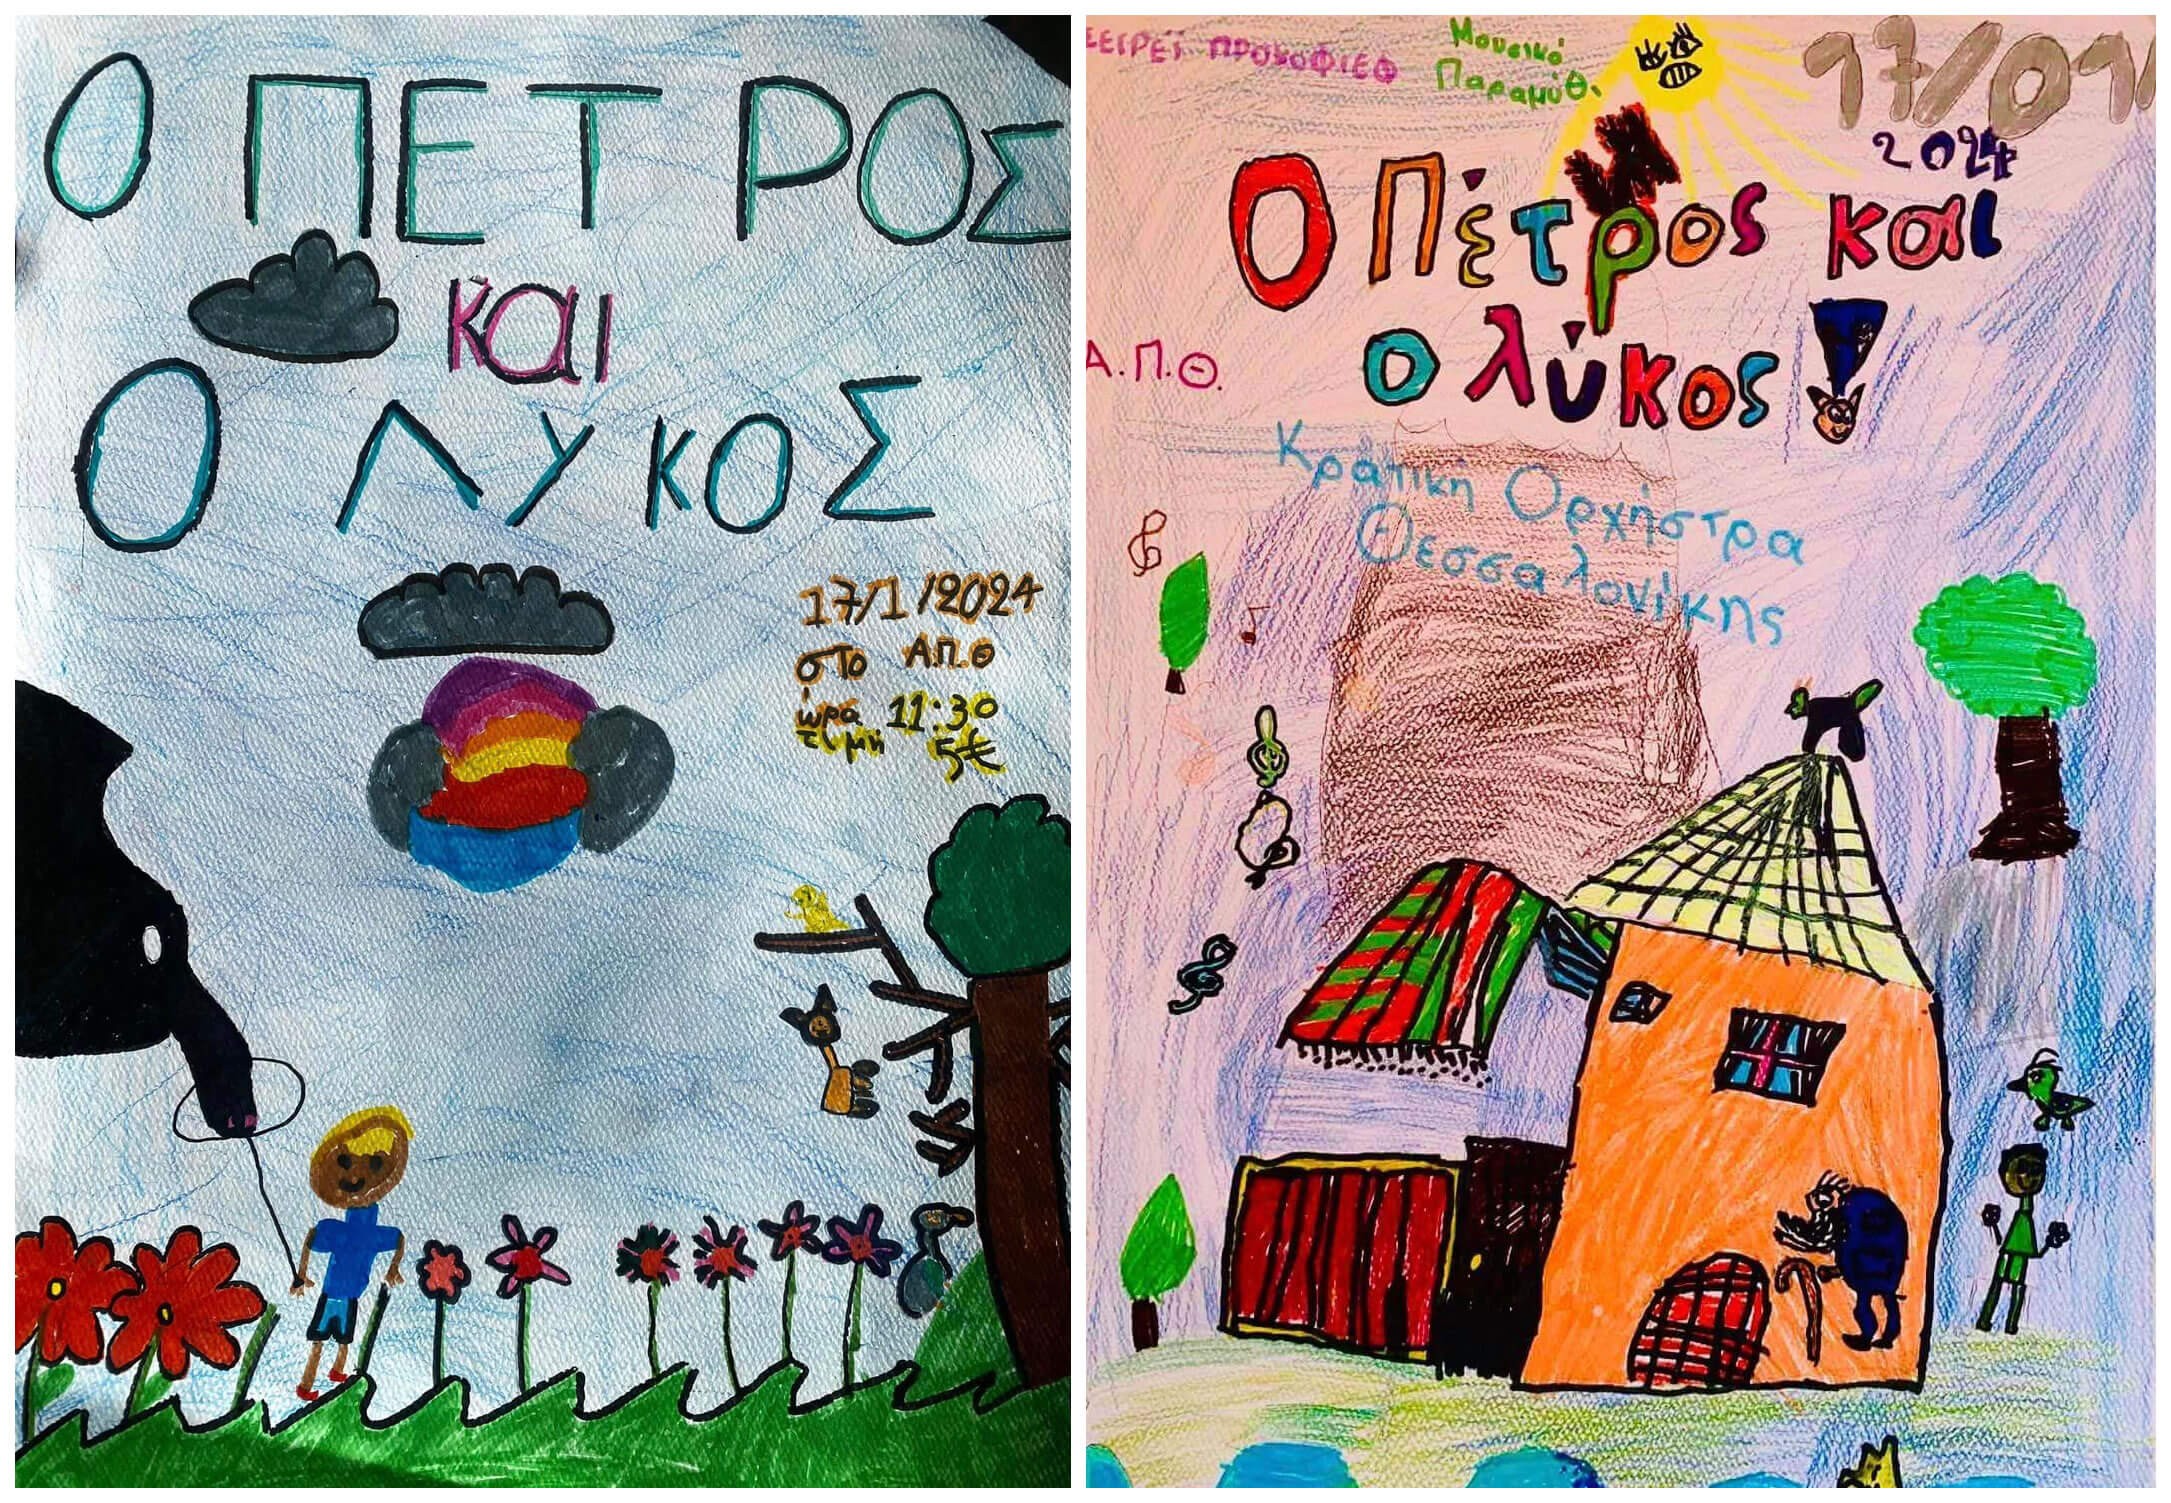 Ο ΠΕΤΡΟΣ
και
Ο ΛΥΚΟΣ
17/1/2024
στο Α.Π.Θ
ώρα 11:30
τιμή 5€
ΣΕΡΓΕΪ ΠΡΟΚΟΦΙΕΦ
Μουσικό
Παραμύθι
17/01/
2024
Ο Πέτρος και
ο λύκος!
Α.Π.Θ.
Κρατική Ορχήστρα
Θεσσαλονίκης